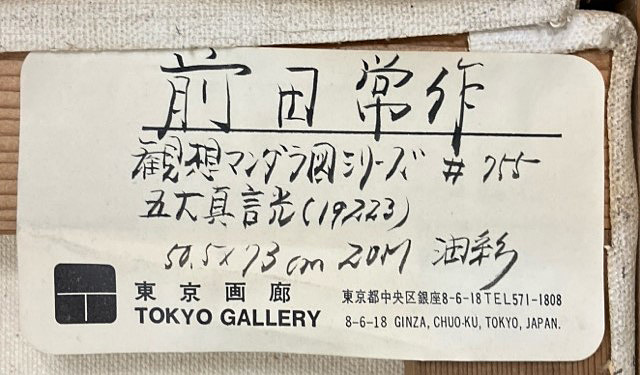 前田常作
観想マンダラ図シリーズ #755
五大真言光(19223)
50.5×73cm 20M 油彩
東京画廊 東京都中央区銀座8-6-18 TEL571-1808
TOKYO GALLERY 8-6-18 GINZA, CHUO-KU, TOKYO, JAPAN.